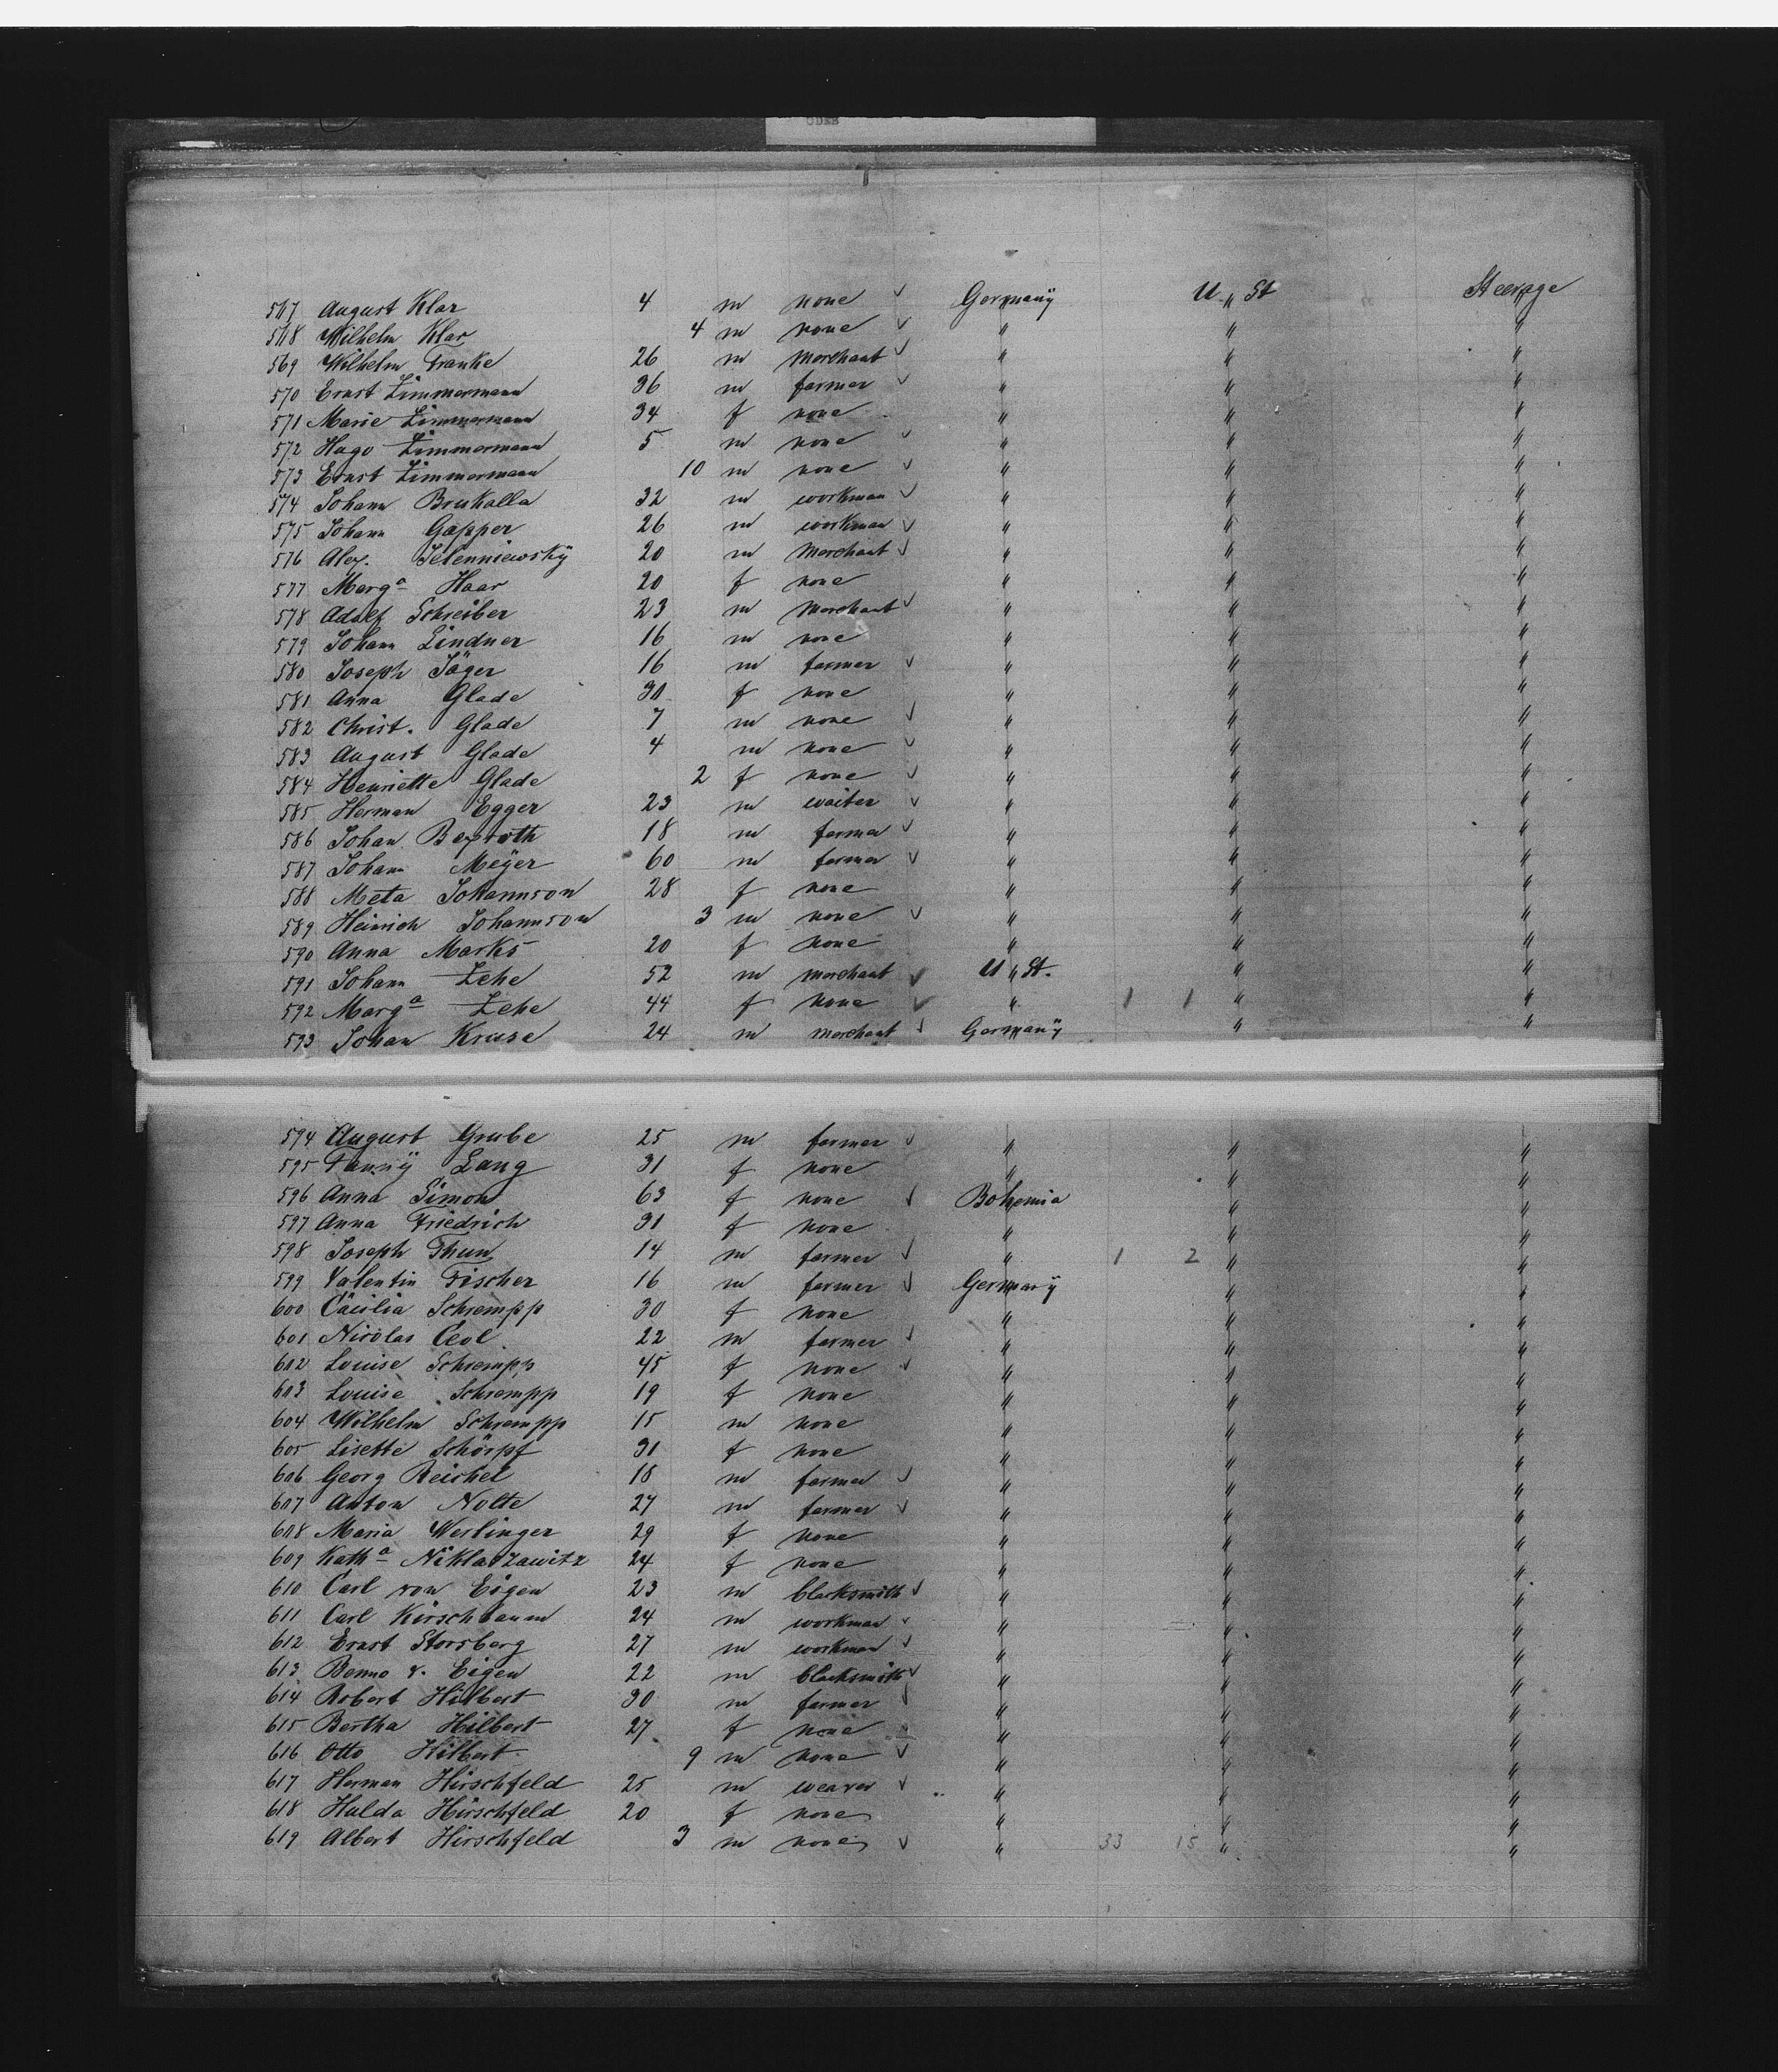 567 August Klar 4 m none ✓ Germany U „ St Steerage
568 Wilhelm Klar 4 m none ✓ „ „ „
569 Wilhelm Franke 26 m merchant ✓ „ „ „
570 Ernst Zimmermann 36 m farmer ✓ „ „ „
571 Marie Zimmermann 34 f none „ „ „
572 Hugo Zimmermann 5 m none ✓ „ „ „
573 Ernst Zimmermann 10 m none ✓ „ „ „
574 Johann Brukalla 32 m workman ✓ „ „ „
575 Johann Gapper 26 m workman ✓ „ „ „
576 Alex. Selenniewský 20 m merchant ✓ „ „ „
577 Marga Haar 20 f none „ „ „
578 Adolf Schreiber 23 m merchant ✓ „ „ „
579 Johann Lindner 16 m none „ „ „
580 Joseph Jäger 16 m farmer ✓ „ „ „
581 Anna Glade 31 f none „ „ „
582 Christ. Glade 7 m none ✓ „ „ „
583 August Glade 4 m none ✓ „ „ „
584 Henriette Glade 2 f none ✓ „ „ „
585 Herman Egger 23 m waiter ✓ „ „ „
586 Johan Bexroth 18 m farmer ✓ „ „ „
587 Johann Meÿer 60 m farmer ✓ „ „ „
588 Meta Johannson 28 f none „ „ „
589 Heinrich Johannson 3 m none ✓ „ „ „
590 Anna Marks 20 f none „ „ „
591 Johann Zehe 52 m merchant ✓ U „ St. „ „
592 Marga Zehe 44 f none ✓ „ 1 1 „ „
593 Johan Kruse 24 m merchant ✓ Germanÿ „ „
594 August Grube 25 m farmer ✓ „ „ „
595 Fannÿ Lang 31 f none „ „ „
596 Anna Simon 63 f none ✓ Bohemia „ „
597 Anna Friedrich 31 f none „ „ „
598 Joseph Thun 14 m farmer ✓ „ 1 2 „ „
599 Valentin Fischer 16 m farmer ✓ Germanÿ „ „
600 Cäcilia Schrempp 30 f none „ „ „
601 Nicolas 22 m farmer ✓ „ „ „
602 Louise Schrempp 45 f none ✓ „ „ „
603 Louise Schrempp 19 f none „ „ „
604 Wilhelm Schrempp 15 m none „ „ „
605 Lisette Schörpf 31 f none „ „ „
606 Georg Reichel 18 m farmer ✓ „ „ „
607 Anton Nolte 27 m farmer ✓ „ „ „
608 Maria Werlinger 29 f none „ „ „
609 Katha Niklaszawitz 24 f none „ „ „
610 Carl von Eigen 23 m blacksmith ✓ „ „ „
611 Carl Kirschbaum 24 m workman ✓ „ „ „
612 Ernst Storsberg 27 m workman ✓ „ „ „
613 Benno v. Eigen 22 m blacksmith ✓ „ „ „
614 Robert Hilbert 30 m farmer ✓ „ „ „
615 Bertha Hilbert 27 f none „ „ „
616 Otto Hilbert 9 m none ✓ „ „ „
617 Herman Hirschfeld 25 m weaver ✓ „ „ „
618 Hulda Hirschfeld 20 f none „ „ „
619 Albert Hirschfeld 3 m none ✓ „ 33 15 „ „